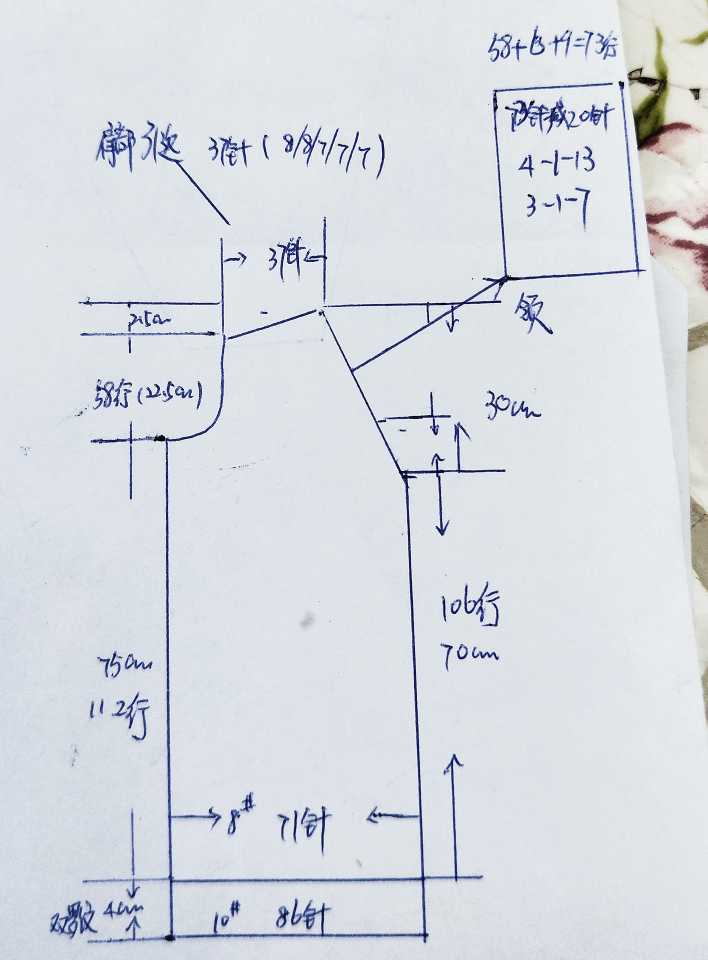 58+13+9=73行
73针减20针
4-1-13
3-1-7
肩部引返 37针(8/8/7/7/7)
37针
领
2.5cm
58行(22.5cm)
30cm
106行
70cm
75cm
112行
8# 71针
双罗纹 4cm
10# 86针